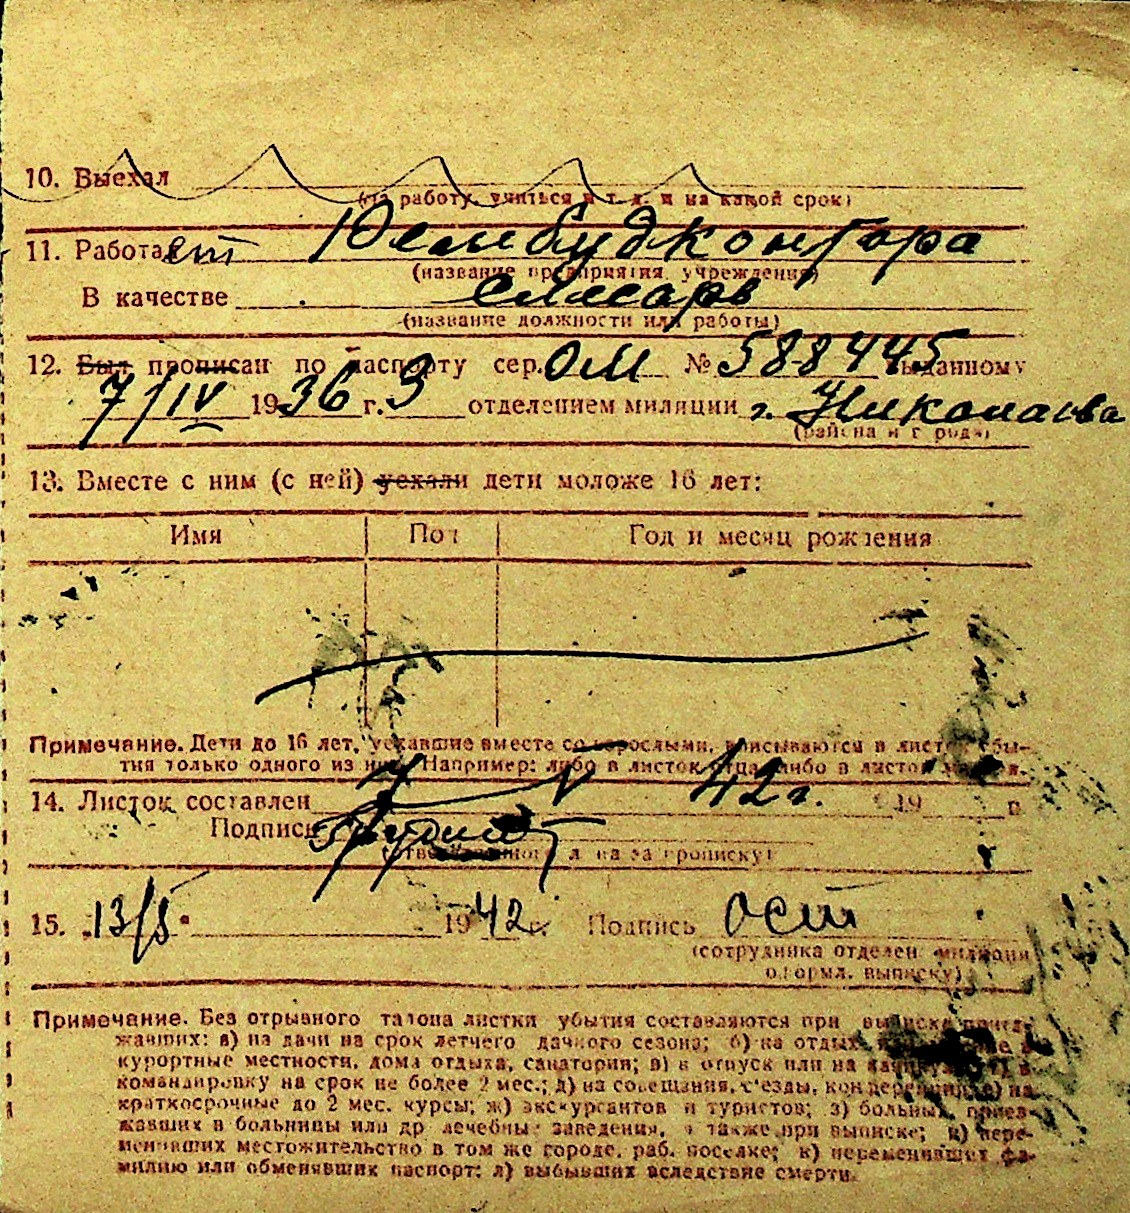 10. Выехал
(на работу, учиться и т. д. и на какой срок)
11. Работает
(название предприятия, учреждения)
В качестве слесарь
(название должности или работы)
12. Был прописан по паспорту сер. ОМ № 588445 выданному
7/IV 1936 г. 3 отделением милиции г. Николаева
(района и города)
13. Вместе с ним (с ней) уехали дети моложе 16 лет:
Имя Пол Год и месяц рождения
Примечание. Дети до 16 лет, уехавшие вместе со взрослыми, вписываются в листок убы-
тия только одного из них. Например: либо в листок отца, либо в листок матери.
14. Листок составлен 7 V 42 г. 19 г.
Подпись
(ответственного лица за прописку)
15. 13/5 1942 г. Подпись
(сотрудника отделен. милиции
оформл. выписку)
Примечание. Без отрывного талона листки убытия составляются при выписке приез-
жавших: а) на дачи на срок летнего дачного сезона; б) на отдых, в
курортные местности, дома отдыха, санатории; в) в отпуск или на каникулы; г) в
командировку на срок не более 2 мес.; д) на совещания, с'езды, конференции; е) на
краткосрочные до 2 мес. курсы; ж) экскурсантов и туристов; з) больных, приез-
жавших в больницы или др лечебные заведения, а также при выписке; и) пере-
менивших местожительство в том же городе, раб. поселке; к) переменивших фа-
милию или обменявших паспорт; л) выбывших вследствие смерти.